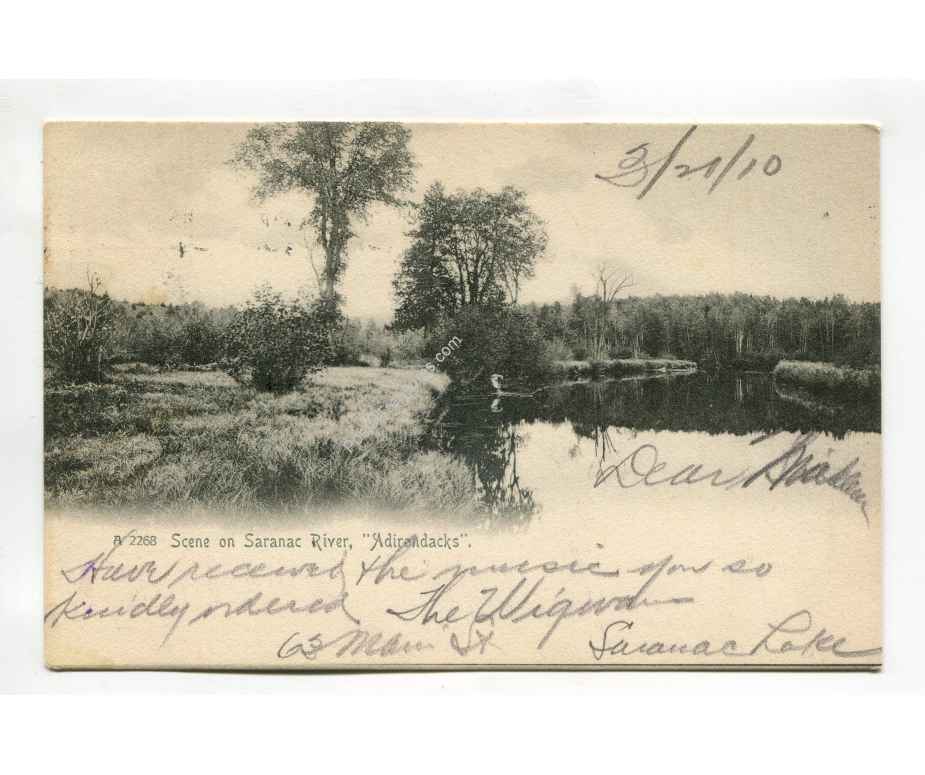 3/21/10
Dear
A 2268 Scene on Saranac River, "Adirondacks".
Have received the music you so
kindly ordered The Wigwam
63 Main St Saranac Lake
s.com